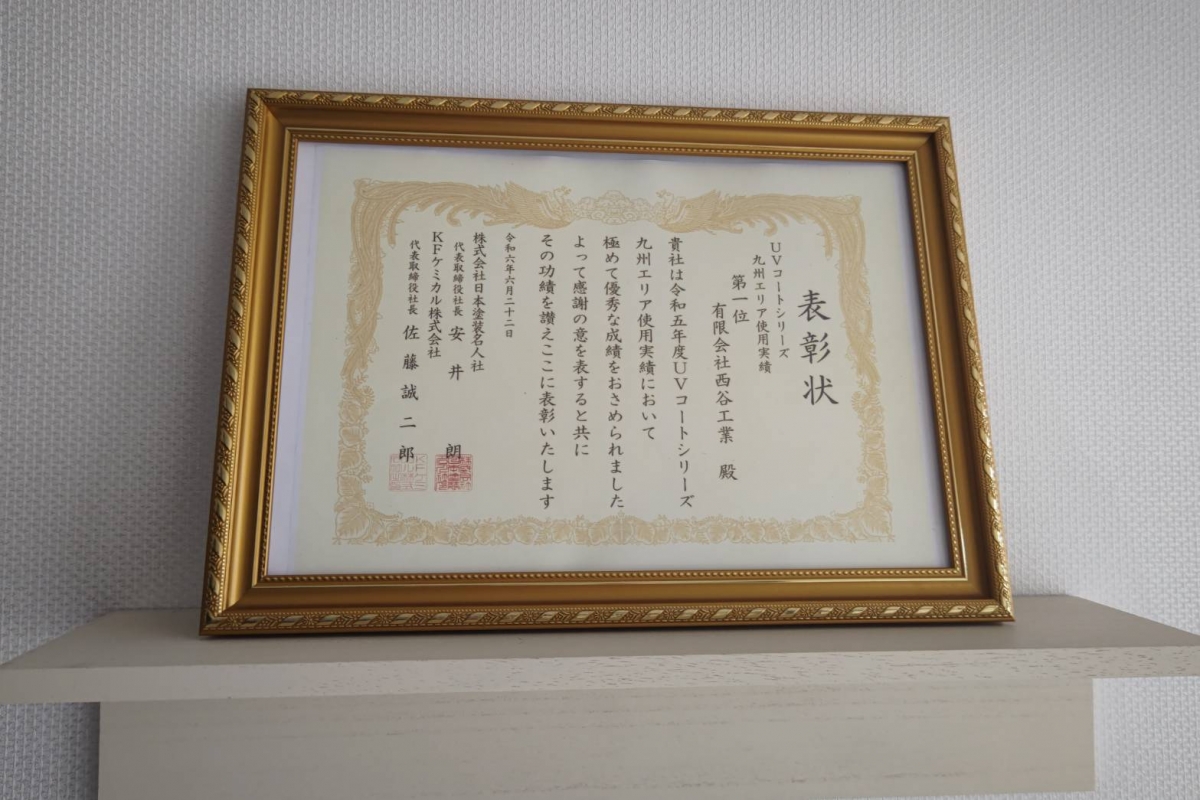 表彰状
UVコートシリーズ
九州エリア使用実績
第一位
有限会社西谷工業 殿
貴社は令和五年度UVコートシリーズ
九州エリア使用実績において
極めて優秀な成績をおさめられました
よって感謝の意を表すると共に
その功績を讃えここに表彰いたします
令和六年六月二十二日
株式会社日本塗装名人社
代表取締役社長 安井 朗
KFケミカル株式会社
代表取締役社長 佐藤誠二郎